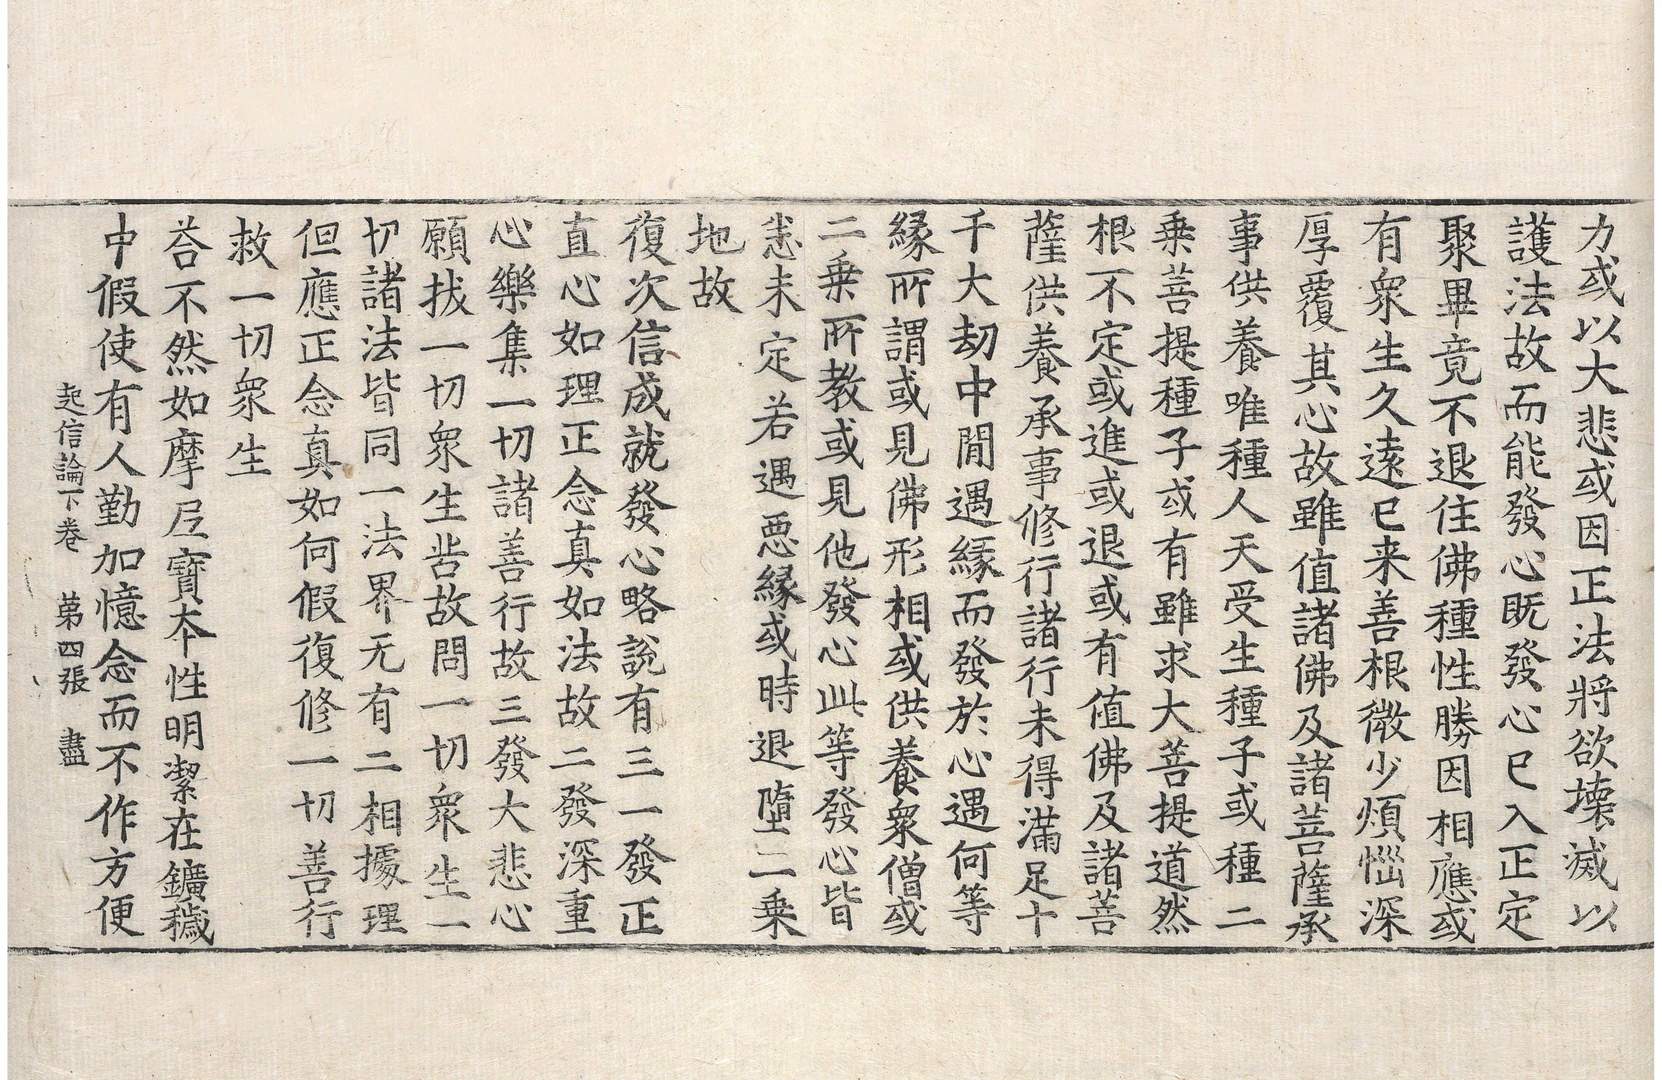 力或以大悲或因正法將欲壞滅以
護法故而能發心既發心已入正定
聚畢竟不退住佛種性勝因相應或
有衆生久遠已来善根微少煩惱深
厚覆其心故雖值諸佛及諸菩薩承
事供養唯種人天受生種子或種二
乗菩提種子或有雖求大菩提道然
根不定或進或退或有值佛及諸菩
薩供養承事修行諸行未得滿足十
千大劫中間遇緣而發於心遇何等
緣所謂或見佛形相或供養衆僧或
二乗所教或見他發心此等發心皆
悉未定若遇悪緣或時退墮二乗
地故
復次信成就發心略說有三一發正
直心如理正念真如法故二發深重
心樂集一切諸善行故三發大悲心
願拔一切衆生苦故問一切衆生一
切諸法皆同一法界无有二相據理
但應正念真如何假復修一切善行
救一切衆生
荅不然如摩尼寶本性明潔在鑛穢
中假使有人勤加憶念而不作方便
起信論下卷　第四張　盡